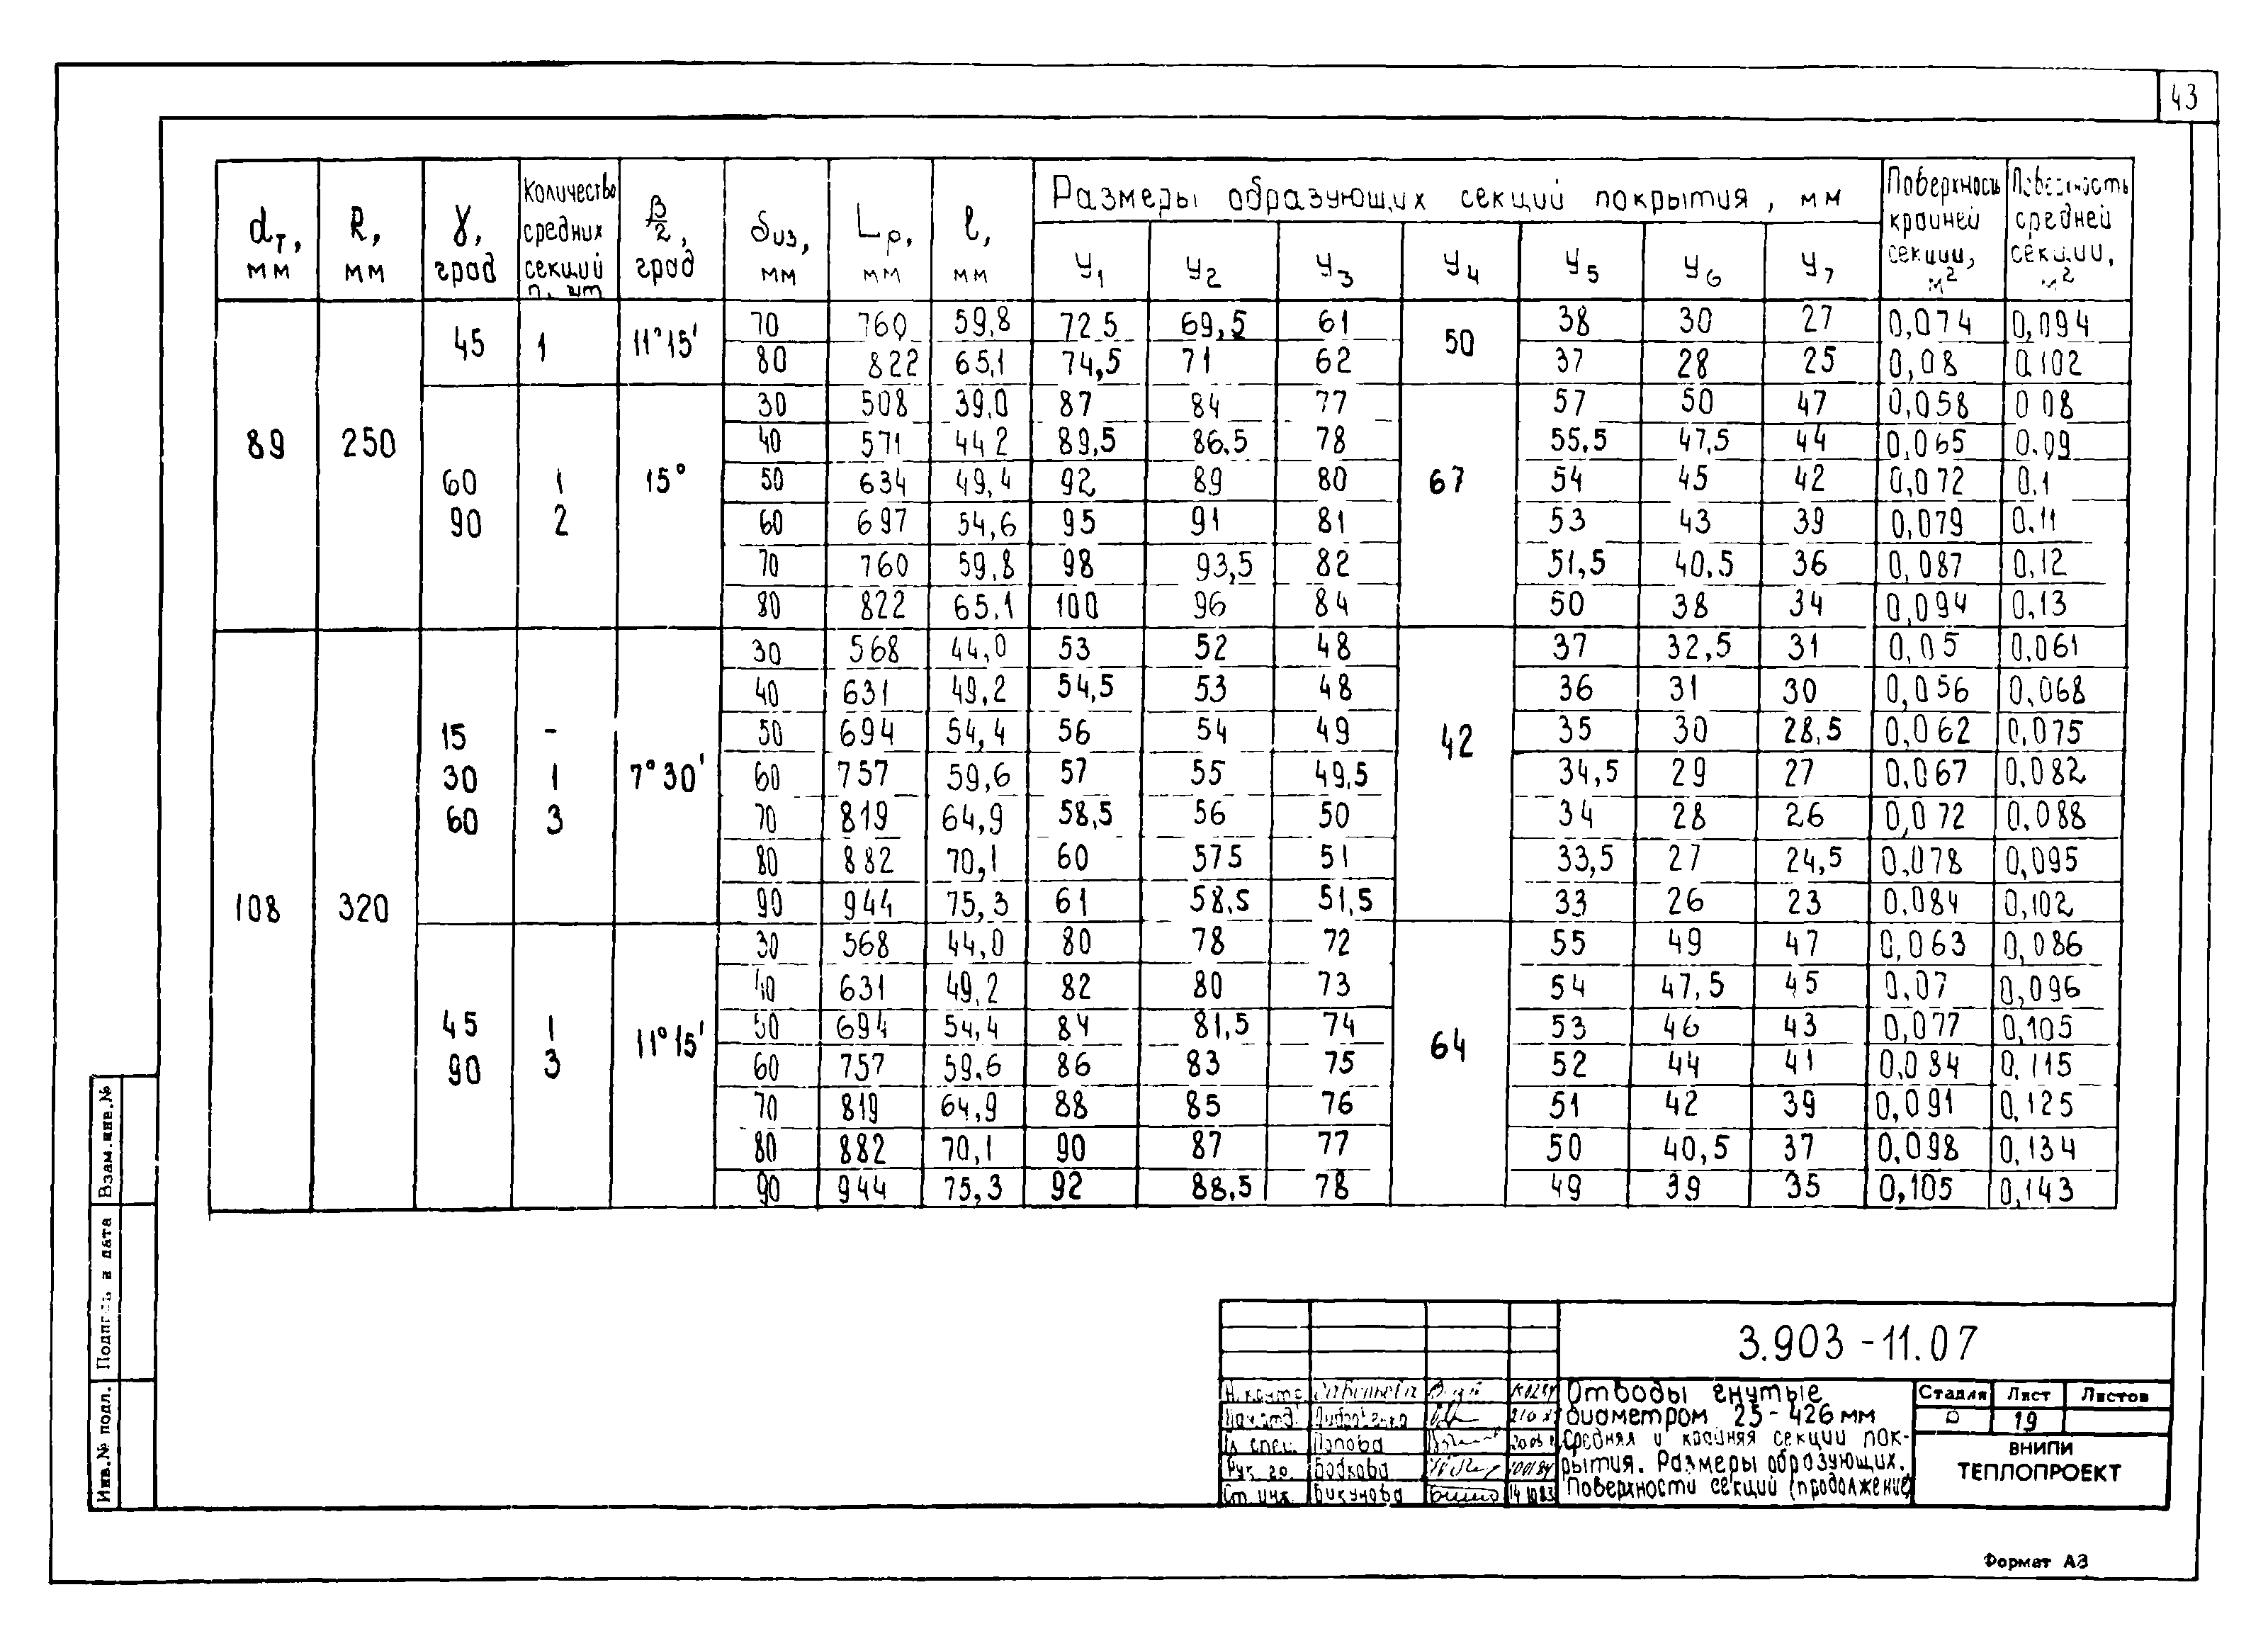 43
dт, мм R, мм γ, град Количество средних секций n, шт β/2, град δиз, мм Lр, мм l, мм Размеры образующих секций покрытия, мм Поверхность крайней секции, м² Поверхность средней секции, м²
У1 У2 У3 У4 У5 У6 У7
89 250 45 1 11°15' 70 760 59,8 72.5 69,5 61 50 38 30 27 0,074 0,094
80 822 65,1 74,5 71 62 37 28 25 0,08 0.102
60 90 1 2 15° 30 508 39,0 87 84 77 67 57 50 47 0,058 0 08
40 571 44 2 89,5 86.5 78 55,5 47,5 44 0,065 0.09
50 634 49,4 92 89 80 54 45 42 0,072 0.1
60 697 54,6 95 91 81 53 43 39 0,079 0.11
70 760 59,8 98 93,5 82 51,5 40,5 36 0,087 0,12
80 822 65,1 100 96 84 50 38 34 0,094 0,13
108 320 15 30 60 - 1 3 7°30' 30 568 44,0 53 52 48 42 37 32,5 31 0,05 0,061
40 631 49,2 54,5 53 48 36 31 30 0,056 0,068
50 694 54,4 56 54 49 35 30 28,5 0,062 0,075
60 757 59,6 57 55 49,5 34,5 29 27 0,067 0,082
70 819 64,9 58,5 56 50 34 28 26 0,072 0.088
80 882 70,1 60 57 5 51 33,5 27 24,5 0,078 0,095
90 944 75,3 61 58,5 51,5 33 26 23 0,084 0,102
45 90 1 3 11°15' 30 568 44,0 80 78 72 64 55 49 47 0,063 0,086
40 631 49,2 82 80 73 54 47,5 45 0,07 0,096
50 694 54,4 84 81,5 74 53 46 43 0,077 0,105
60 757 59,6 86 83 75 52 44 41 0,084 0,115
70 819 64,9 88 85 76 51 42 39 0,091 0,125
80 882 70,1 90 87 77 50 40,5 37 0,098 0,134
90 944 75,3 92 88,5 78 49 39 35 0,105 0,143
Взам.инв.№
Подпись и дата
Инв.№ подл.
3.903-11.07
Н.контр.
Нач.отд.
Гл спец. Попова
Рук гр. Бодкова
Ст инж. Бикунова
Отводы гнутые
диаметром 25-426 мм
Средняя и крайняя секции пок-
рытия. Размеры образующих.
Поверхности секций (продолжение)
Стадия Лист Листов
Р 19
ВНИПИ
ТЕПЛОПРОЕКТ
Формат А3